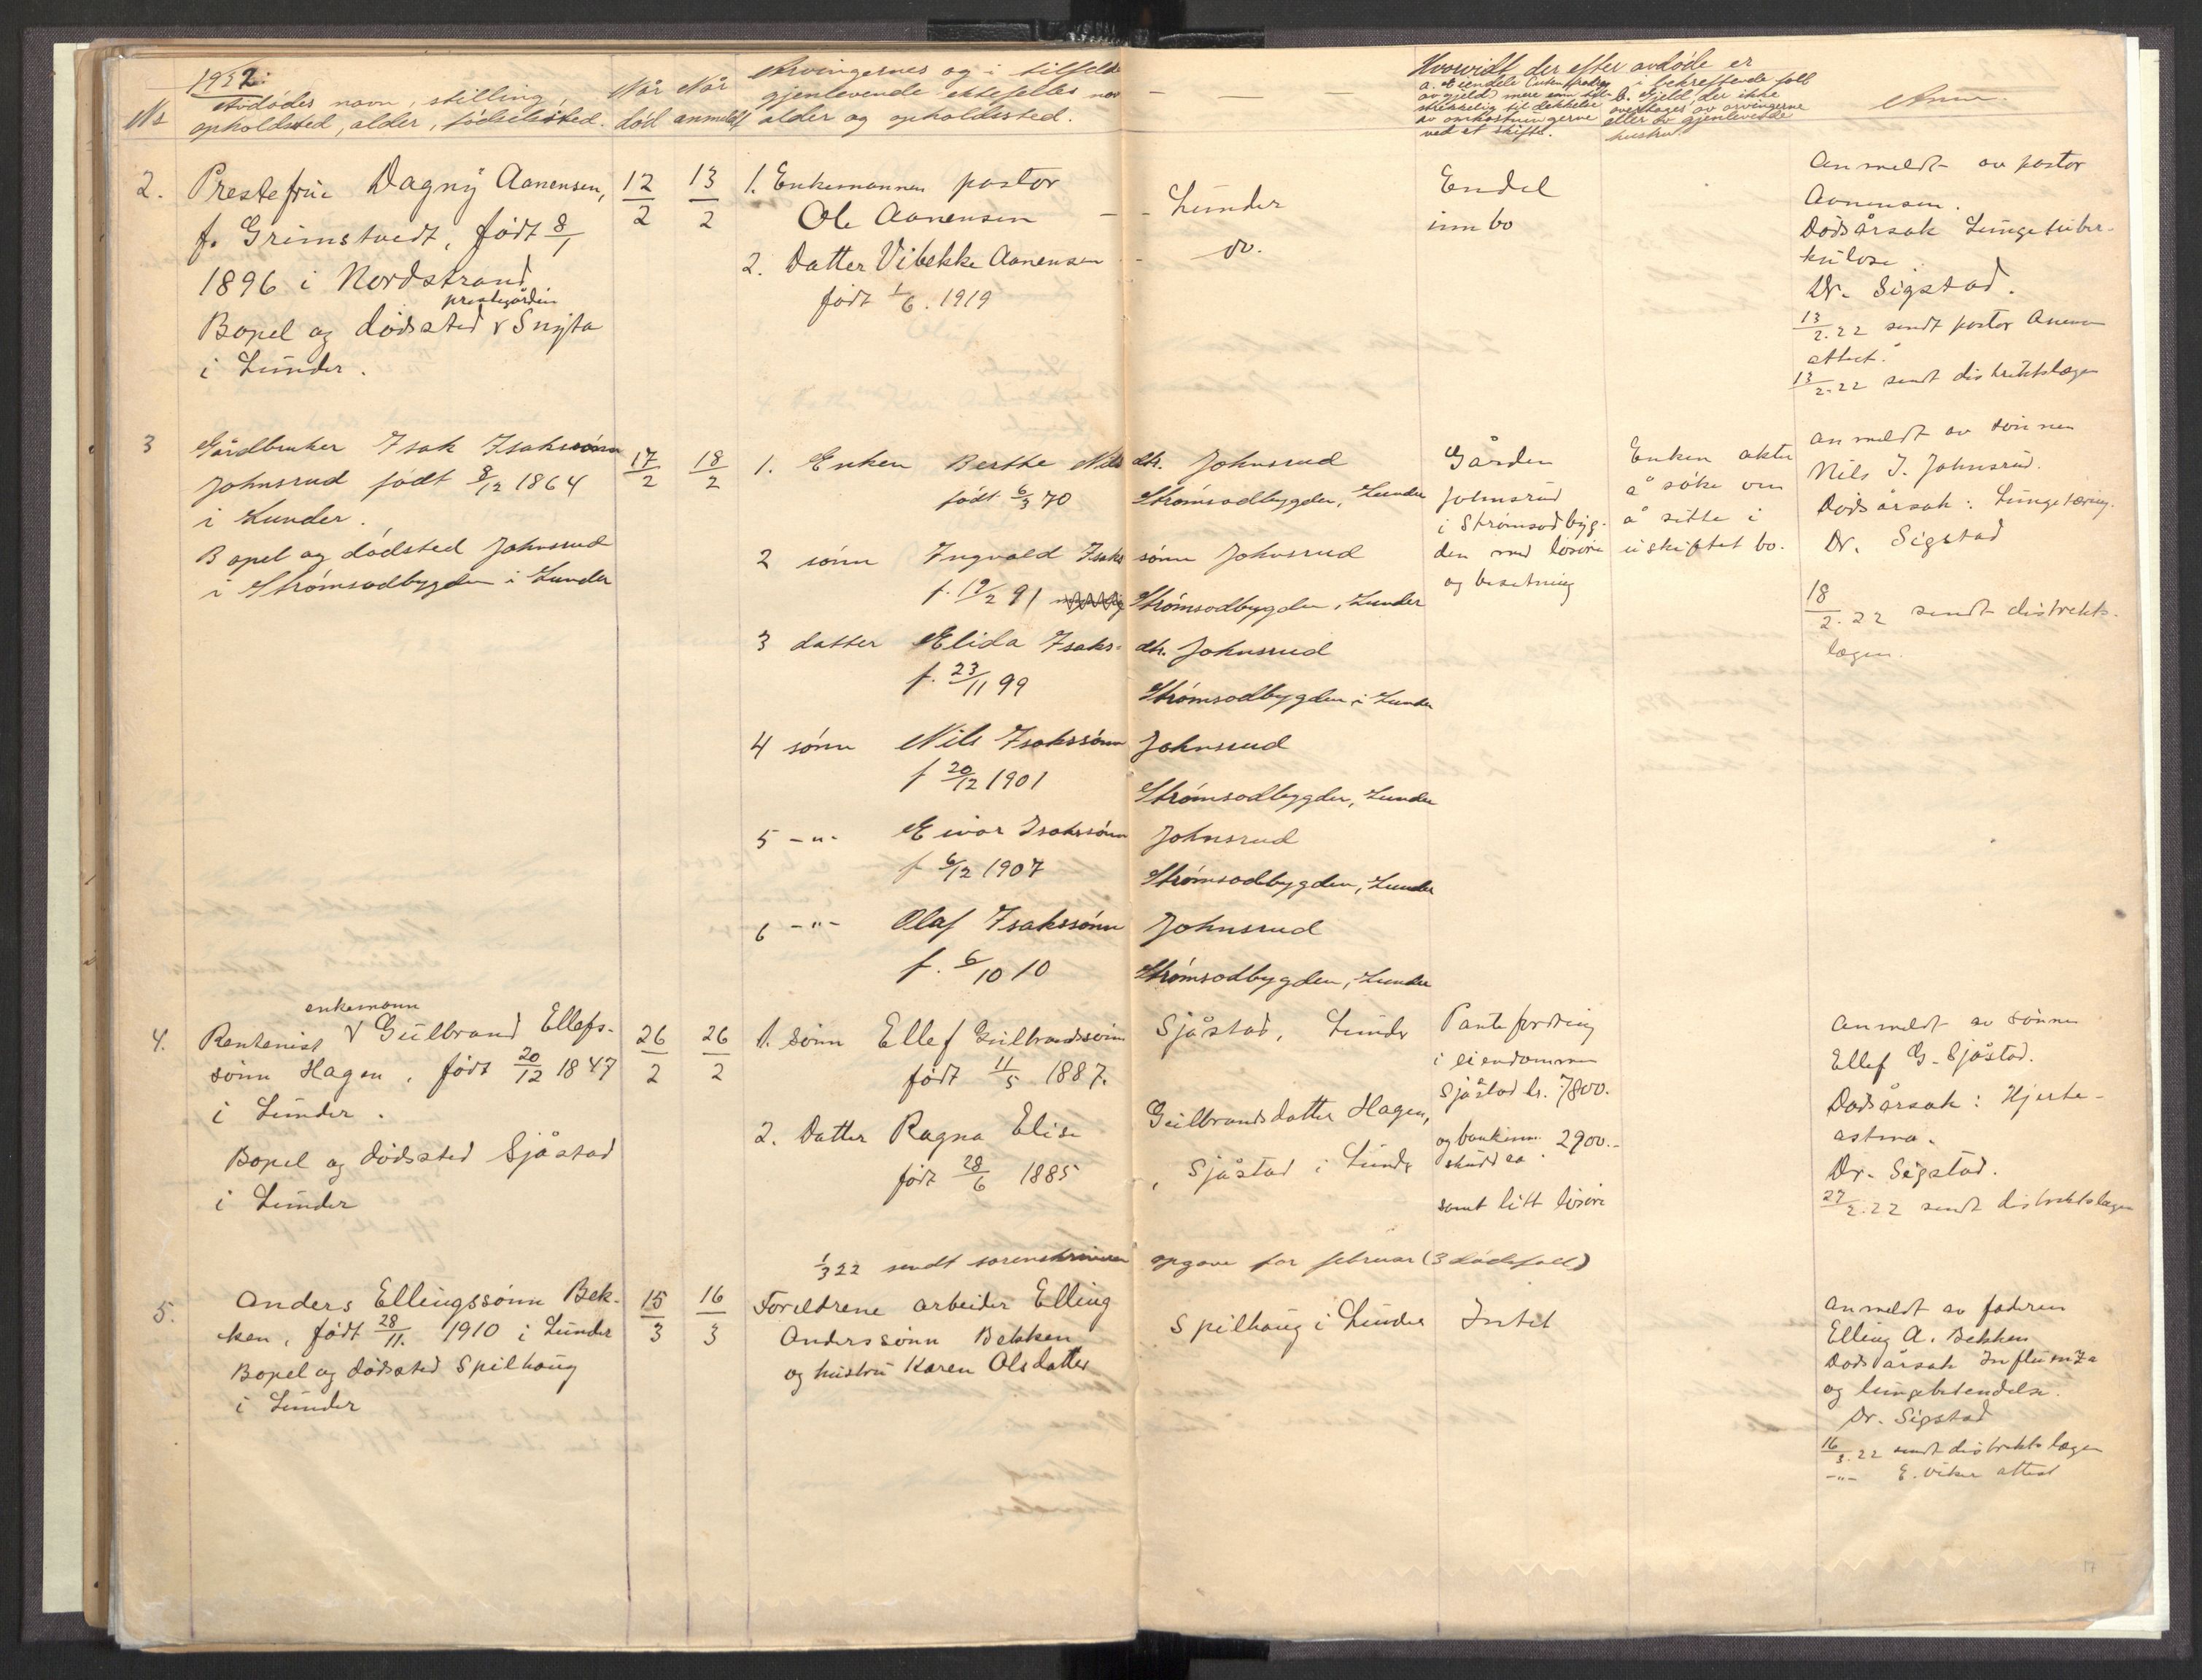 1922.
No
Avdødes navn, stilling,
opholdssted, alder, fødselssted.
Når
død
Når
anmeldt
Arvingernes og i tilfelde
gjenlevende ektefelles navn
alder og opholdssted.
Hvorvidt der efter avdøde er
a. Eiendele uten fradrag
av gjeld mere enn til-
strekkelig til dekkelse
av omkostningerne
ved et skifte.
i bekreftende fall
b. Gjeld, der ikke
overtages av arvingerne
eller av gjenlevende
hustru
Anm.
2.
Prestefrue Dagny Aanensen,
f. Grimstvedt, født 8/1
1896 i Nordstrand
prestegården
Bopel og dødssted v Snyta
i Lunder.
12/2
13/2
1. Enkemannen pastor
Ole Aanensen - - Lunder
2. Datter Vibekke Aanensen - do.
født 1/6. 1919
Endel
innbo
Anmeldt av pastor
Aanensen.
Dødsårsak Lungetuber-
kulose
Dr. Sigstad.
13/2.22 sendt pastor Aanensen
attest.
13/2.22 sendt distriktslægen
3
Gårdbruker Isak Isakssønn
Johnsrud født 8/12 1864
i Lunder.
Bopel og dødsted Johnsrud
i Strømsodbygden i Lunder
17/2
18/2
1. Enken Berthe Nils dtr. Johnsrud
født 6/3 70 Strømsodbygden, Lunder
2 sønn Ingvald Isaks sønn Johnsrud
f. 19/2 91 Strømsodbygden, Lunder
3 datter Elida Isaks- dtr. Johnsrud
f. 23/11 99 Strømsodbygden i Lunder
4 sønn Nils Isakssønn Johnsrud
f 20/12 1901 Strømsodbygden, Lunder
5 -"- Eivar Isakssønn Johnsrud
f 6/12 1907 Strømsodbygden, Lunder
6 -"- Olaf Isakssønn Johnsrud
f. 6/10 10 Strømsodbygden, Lunder
Gården
Johnsrud
i Strømsodbyg-
den med løsøre
og besetning
Enken akter
å søke om
å sitte i
uskiftet bo.
Anmeldt av sønnen
Nils I. Johnsrud.
Dødsårsak: Lungetæring.
Dr. Sigstad
18/2.22 sendt distrikts-
lægen.
4.
enkemann
Rentenist v Gulbrand Ellefs-
sønn Hagen, født 20/12 1847
i Lunder.
Bopel og dødssted Sjåstad
i Lunder
26/2
26/2
1. Sønn Ellef Gulbrandssønn Sjåstad, Lunder
født 11/5 1887.
2. Datter Ragna Elise Gulbrandsdatter Hagen,
født 28/6 1885 , Sjåstad i Lunder
Pantefordring
i eiendommen
Sjåstad kr. 7800.
og bankinn-
skudd ca. 2900.-
samt litt løsøre
Anmeldt av sønnen
Ellef G. Sjåstad.
Dødsårsak: Hjerte-
astma.
Dr. Sigstad.
27/2.22 sendt distriktslægen
1/3 22 sendt sorenskriveren opgave for februar (3 dødsfall)
5.
Anders Ellingssønn Bek-
ken, født 28/11. 1910 i Lunder
Bopel og dødssted Spilhaug
i Lunder
15/3
16/3
Foreldrene arbeider Elling
Anderssønn Bekken
og hustru Karen Olsdatter
Spilhaug i Lunder
Intet
Anmeldt av faderen
Elling A. Bekken
Dødsårsak Influenza
og lungebetendelse.
Dr. Sigstad
16/3.22 sendt distriktslægen
-"- E. Viker attest